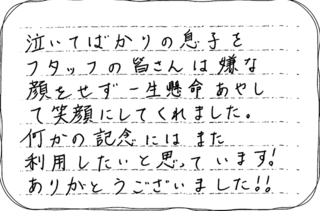 泣いてばかりの息子を
スタッフの皆さんは嫌な
顔をせず一生懸命あやし
て笑顔にしてくれました。
何かの記念にはまた
利用したいと思っています!
ありがとうございました!!